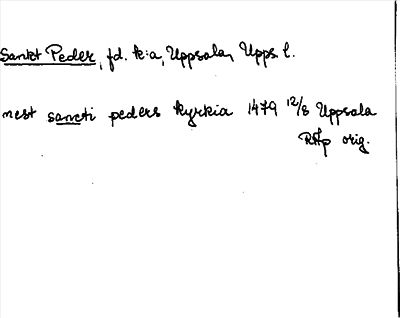 Sankt Peder, fd. k:a, Uppsala, Upps. l.
nest sancti peders kyrkia 1479 12/8 Uppsala
RAp orig.